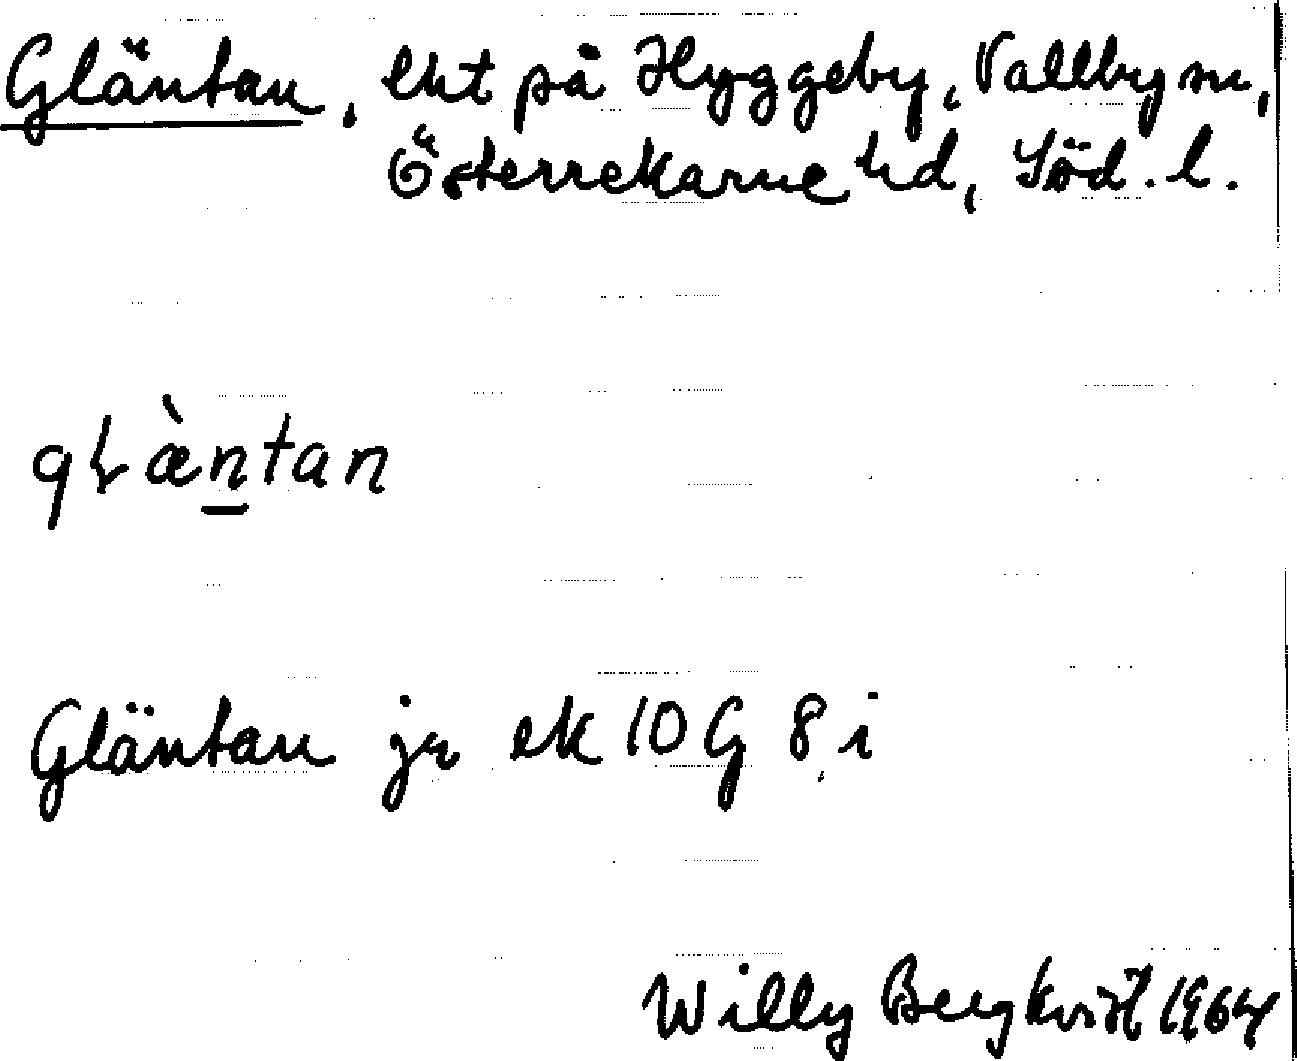 Gläntan, lht på Hyggeby, Vallby sn,
Österrekarne hd, Söd. l.
gɫæ̀ṉtan
Gläntan ja ek 10 G 8 i
Willy Bergkvist 1964